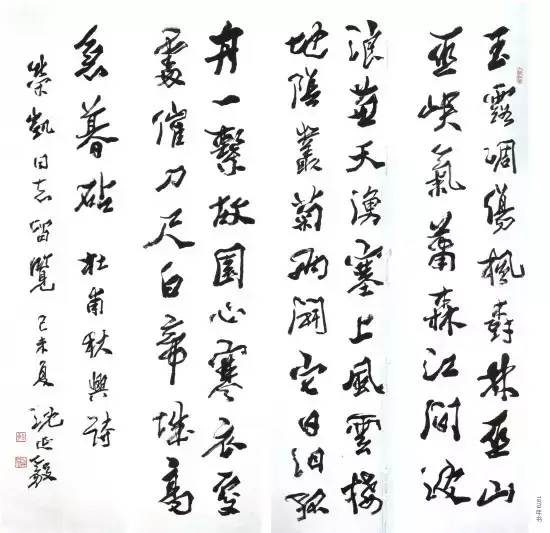 玉露凋傷楓樹林巫山
巫峽氣蕭森江間波
浪兼天湧塞上風雲接
地陰叢菊兩開它日淚孤
舟一繫故園心寒衣處
處催刀尺白帝城高
急暮砧 杜甫秋興詩
榮凱同志留覽 己未夏 沈延毅
1979年书